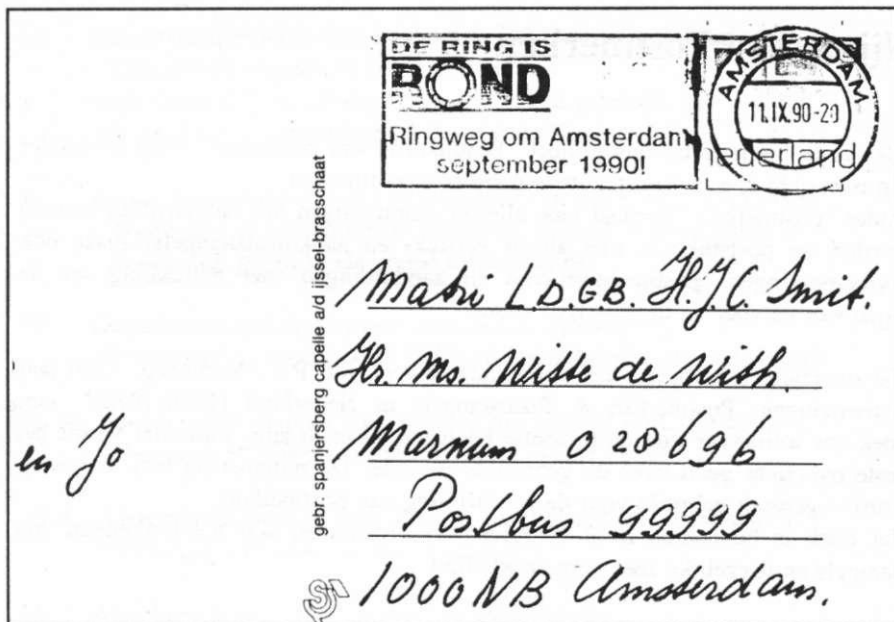 DE RING IS
ROND
Ringweg om Amsterdam
september 1990!
AMSTERDAM
11.IX.90-20
nederland
gebr. spanjersberg capelle a/d ijssel-brasschaat
Matri L.D.G.B. H.J.C. Smit.
Hr. Ms. Witte de With
Marnum 028696
Postbus 99999
1000 NB Amsterdam.
en Jo